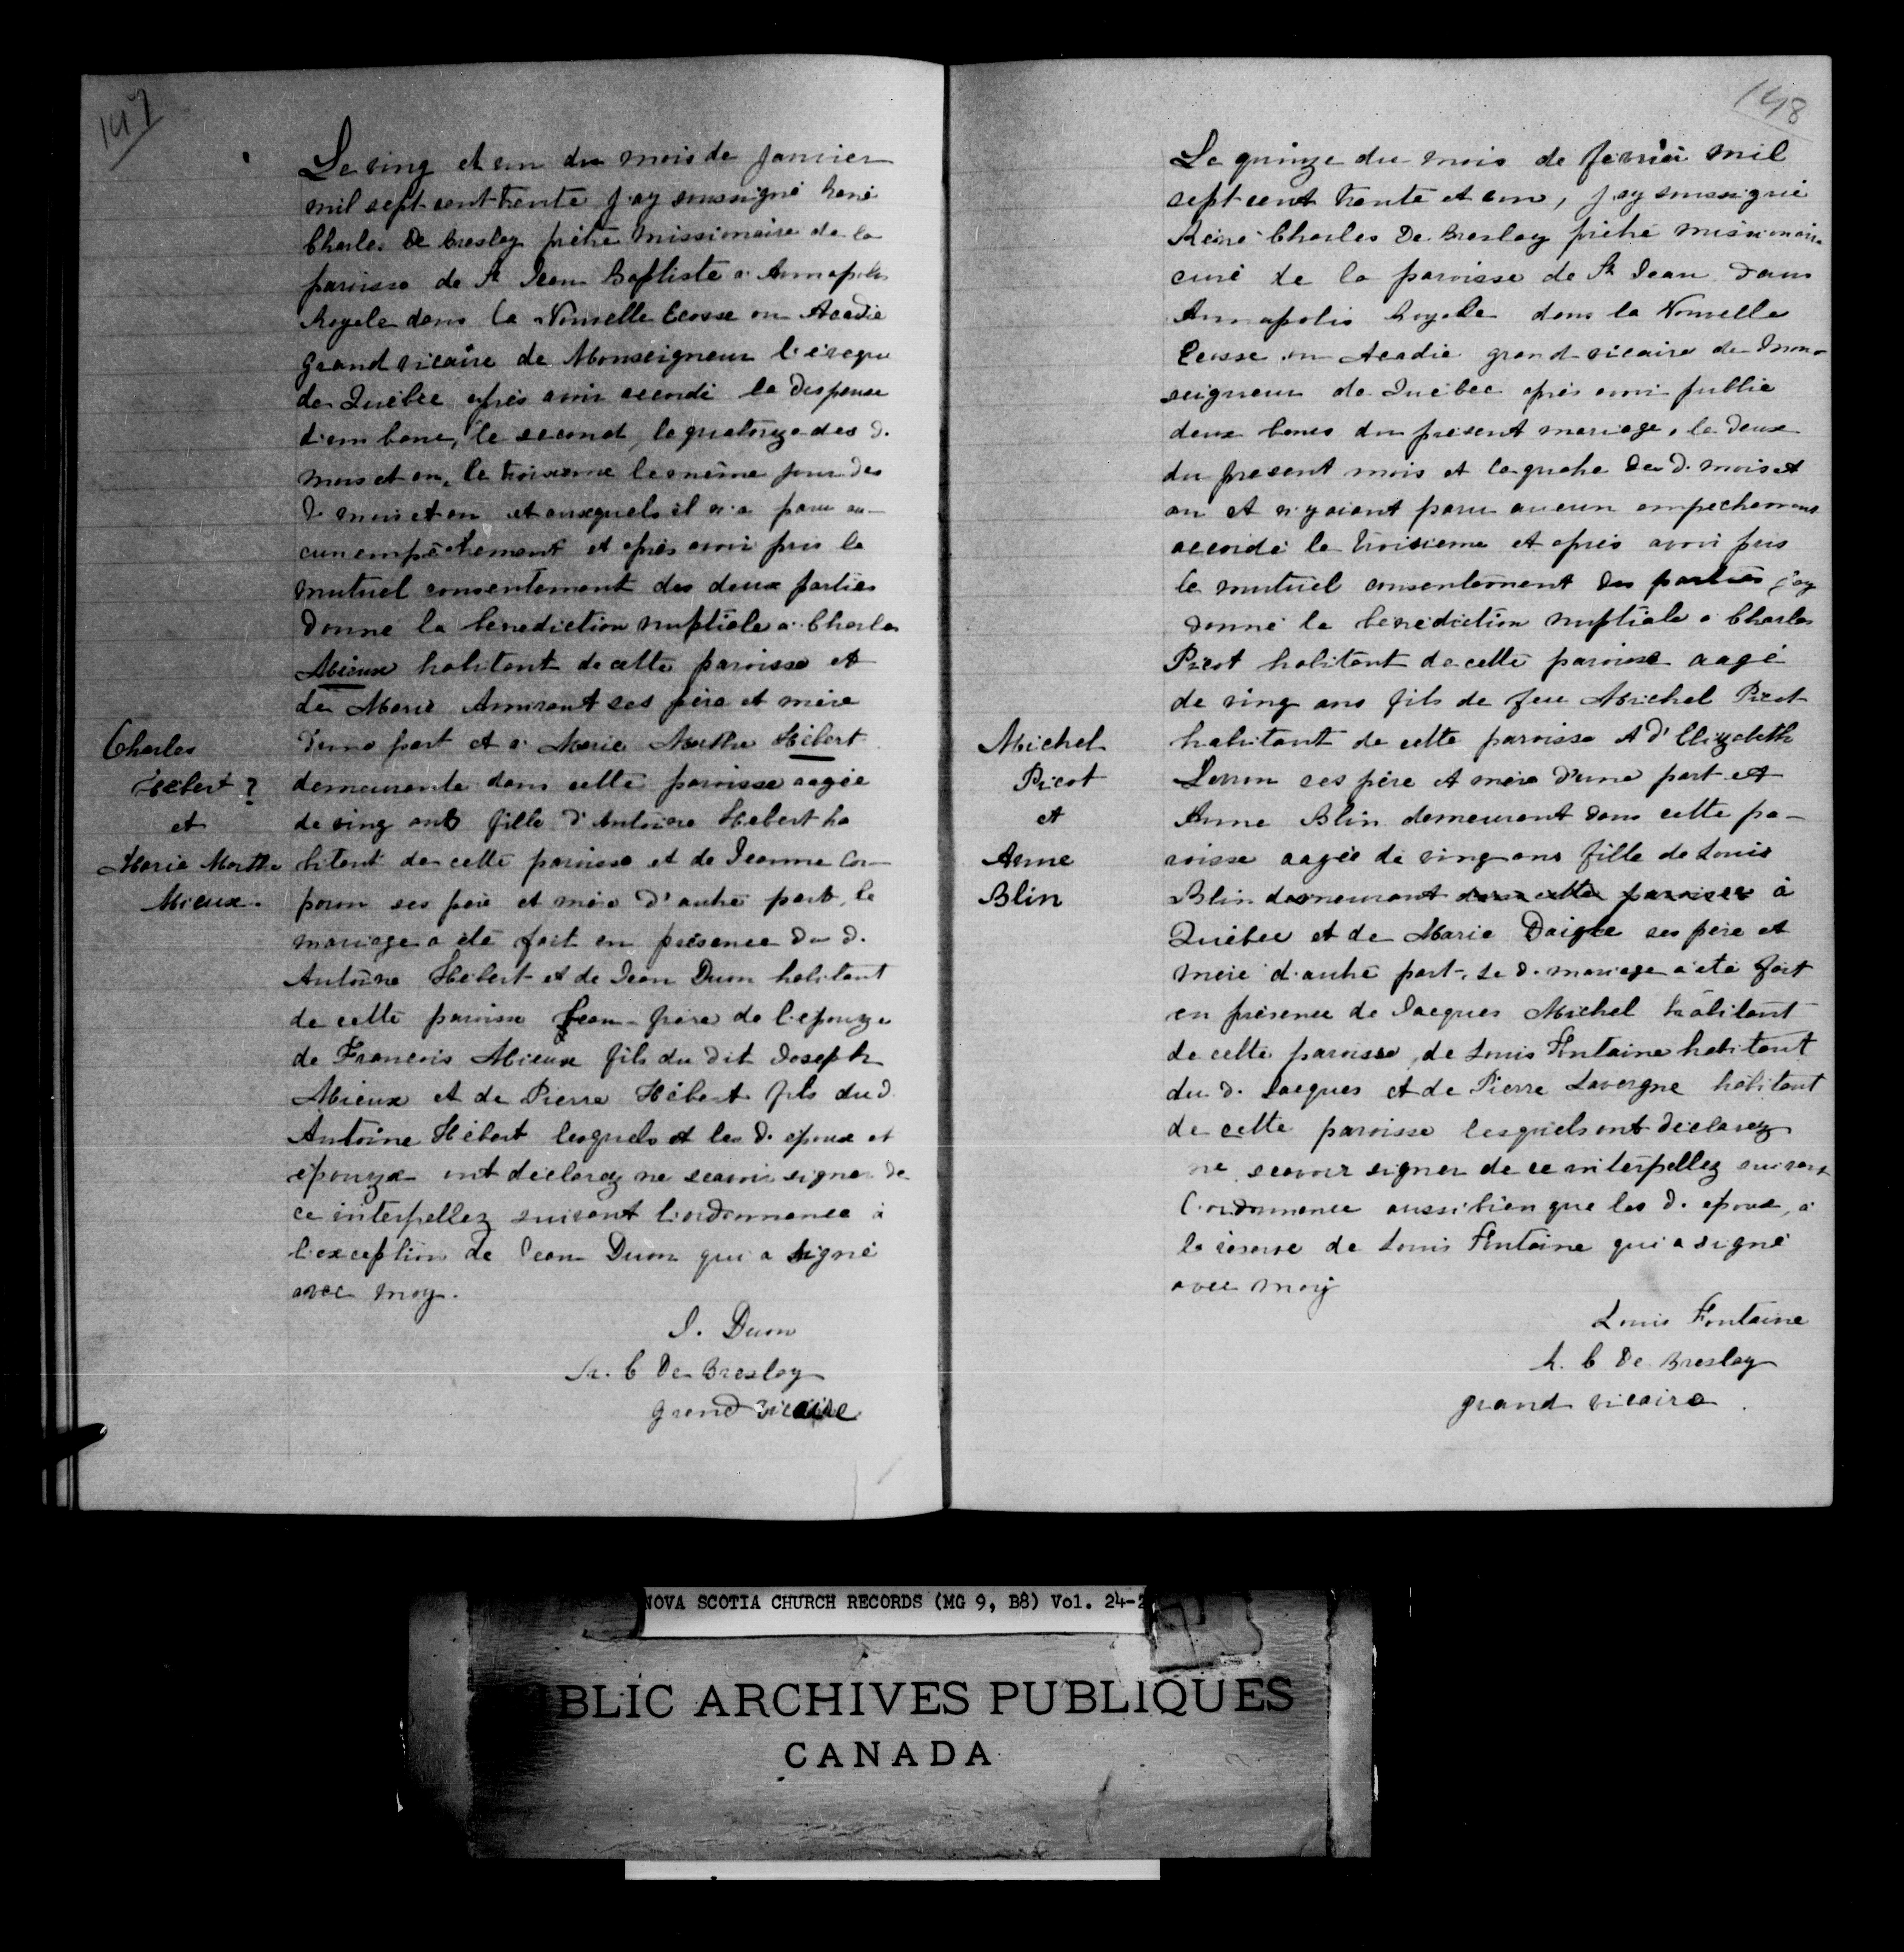 147
Le ving et un du mois de Janvier
mil sept cent trente j'ay soussigné René
Charles De Breslay prêtre missionnaire de la
paroisse de St Jean Baptiste a Annapolis
Royale dans la Nouvelle Ecosse ou Acadie
grand vicaire de Monseigneur l'évêque
de Québec après avoir accordé la dispense
d'un banc, le second, le quatorze des d.
mois et an, le troisieme le même jour des
d. mois et an et auxquels il n'a paru au-
cun empêchement et après avoir pris le
mutuel consentement des deux parties
donné la benediction nuptiale a Charles
Mieux habitant de cette paroisse et
de Marie Amirant ses père et mère
d'une part et a Marie Marthe Hébert
demeurante dans cette paroisse agée
de ving ans fille d'Antoine Hebert ha
bitant de cette paroisse et de Jeanne Cor-
poron ses père et mère d'autre part, le
mariage a été fait en présence du d.
Antoine Hébert et de Jean Duon habitant
de cette paroisse Jean frère de l'epouze
de Francois Mieux fils du dit Joseph
Mieux et de Pierre Hébert fils du d.
Antoine Hébert lesquels et les d. epoux et
épouze ont declarez ne scavoir signer de
ce interpellez suivant l'ordonnance à
l'exception de Jean Duon qui a signé
avec moy.
J. Duon
R. C De Breslay
grand vicaire
Charles
Hébert ?
et
Marie Marthe
Mieux.
148
Le quinze du mois de fevrier mil
sept cent trente et un, j'ay soussigné
René Charles De Breslay prêtre missionnaire
curé de la paroisse de St Jean dans
Annapolis Royale dans la Nouvelle
Ecosse ou Acadie grand vicaire de Mon-
seigneur de Québec après avoir publié
deux bancs du présent mariage, le deux
du present mois et le quatre des d. mois et
an et n'y aiant paru aucun empechement
accordé le troisieme et après avoir pris
le mutuel consentement des parties j'ay
donné la benediction nuptiale a Charles
Picot habitant de cette paroisse aagé
de ving ans fils de feu Michel Picot
habitant de cette paroisse et d'Elizabeth
Levron ses père et mère d'une part et
Anne Blin demeurant dans cette pa-
roisse aagée de ving ans fille de Louis
Blin demeurant dans cette paroisse à
Québec et de Marie Daigle ses père et
mère d'autre part. Le d. mariage a été fait
en présence de Jacques Michel habitant
de cette paroisse, de Louis Fontaine habitant
du d. Jacques et de Pierre Lavergne habitant
de cette paroisse lesquels ont déclarez
ne scavoir signer de ce interpellez suivant
l'ordonnance aussi bien que les d. epoux, à
la réserve de Louis Fontaine qui a signé
avec moy
Louis Fontaine
R. C De Breslay
grand vicaire.
Michel
Picot
et
Anne
Blin
NOVA SCOTIA CHURCH RECORDS (MG 9, B8) Vol. 24-2
BLIC ARCHIVES PUBLIQUES
CANADA